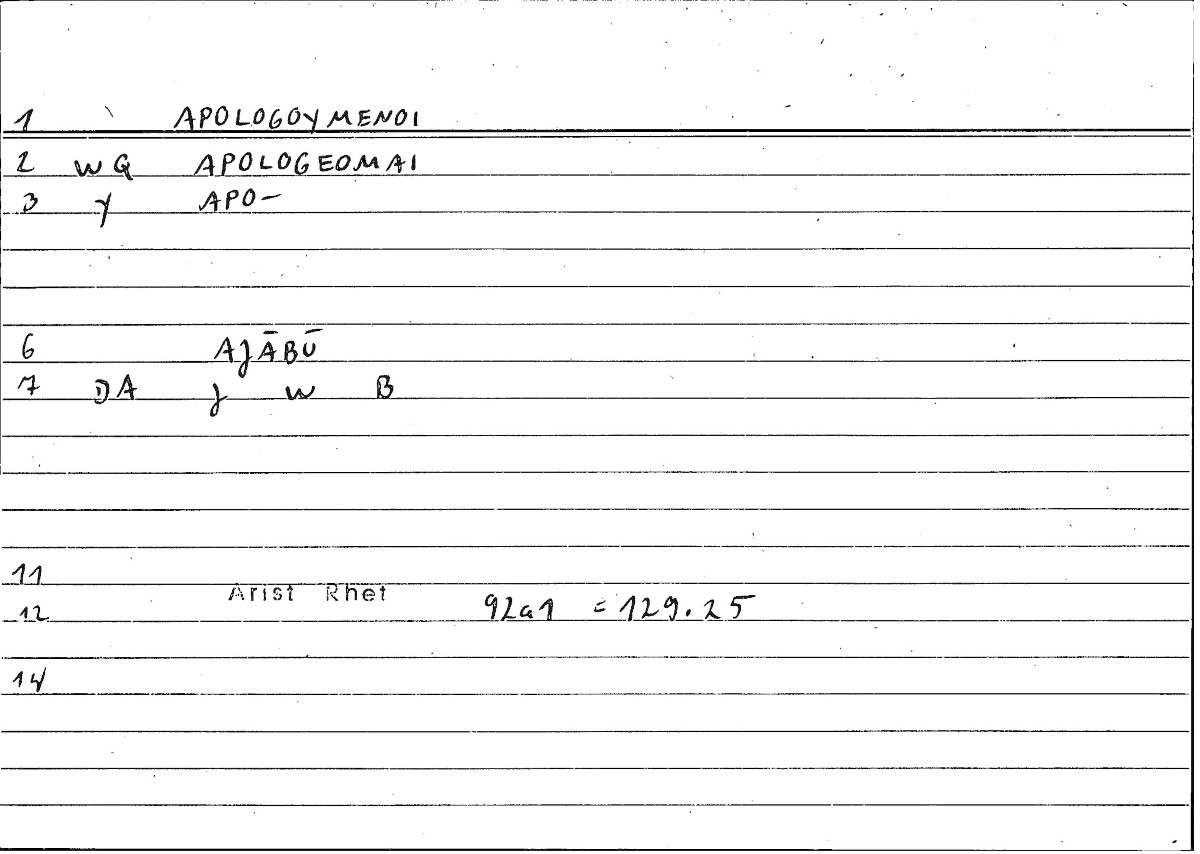 1 APOLOGOYMENOI
2 WQ APOLOGEOMAI
3 Y APO-
6 AJĀBŪ
7 DA J W B
11
12 Arist Rhet 92a1 = 129.25
14